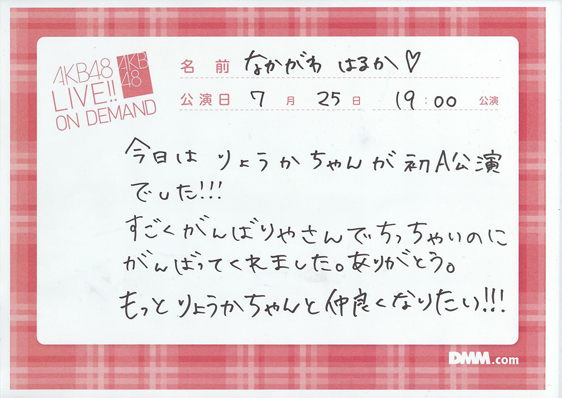 AKB48
LIVE!!
ON DEMAND
AKB
48
名前 なかがわ はるか♡
公演日 7月25日 19:00 公演
今日は りょうかちゃんが 初A公演
でした!!!
すごくがんばりやさんでちっちゃいのに
がんばってくれました。ありがとう。
もっとりょうかちゃんと仲良くなりたい!!!
DMM.com